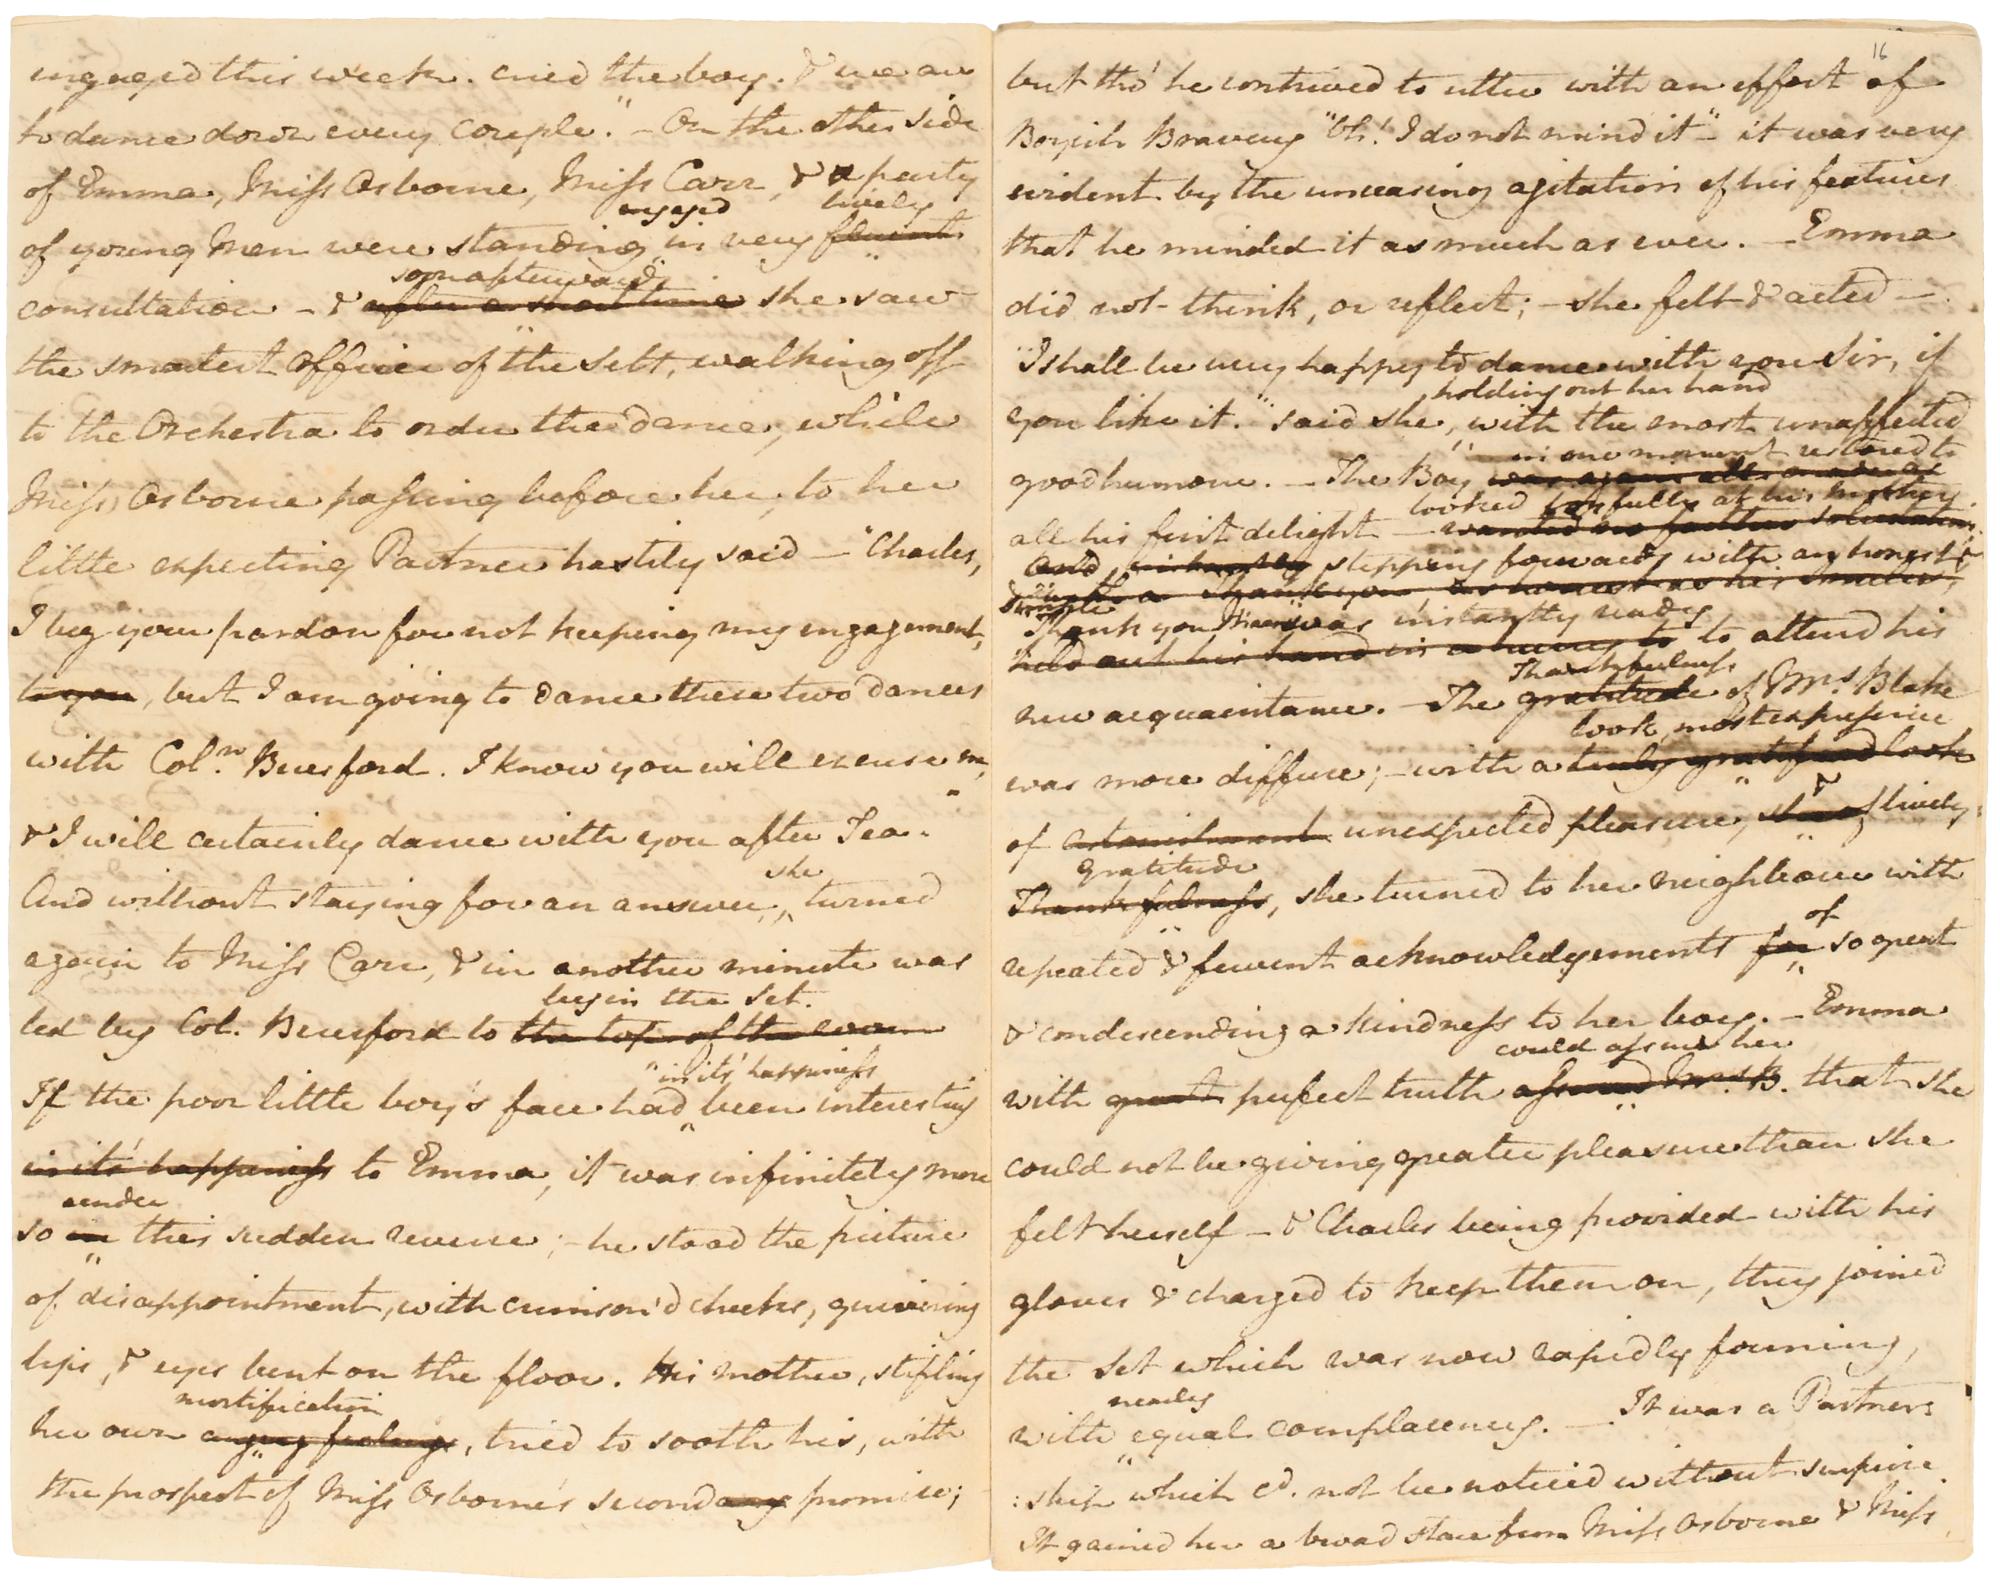 engaged this week. cried the boy. & we are
to dance down every couple." – On the other side
of Emma, Miss Osborne, Miss Carr, & a party
engaged lively
of young Men were standing in very fluent
soon afterwards
consultation – & after a short time she saw
the smartest officer of the Sett, walking off
to the Orchestra to order the dance, while
Miss Osborne passing before her, to her
little expecting Partner hastily said – "Charles,
I beg your pardon for not keeping my engagement,
to you, but I am going to dance these two dances
with Coln. Beresford. I know you will excuse me,
& I will certainly dance with you after Tea.
she
And without staying for an answer, turned
again to Miss Carr, & in another minute was
begin the set.
led by Col. Beresford to the top of the room
in it's happiness
If the poor little boy's face had been interesting
in it's happiness to Emma, it was infinitely more
under
so in this sudden reverse; – he stood the picture
of disappointment, with crimson'd cheeks, quivering
lips, & eyes bent on the floor. His mother, stifling
mortification
her own angry feelings, tried to sooth his, with
the prospect of Miss Osborne's second promise;
16
but tho' he contrived to utter with an effort of
Boyish Bravery "Oh! I do not mind it" – it was very
evident by the unceasing agitation of his features
that he minded it as much as ever. – Emma
did not think, or reflect; – she felt & acted –.
"I shall be very happy to dance with you Sir, if
holding out her hand
you like it." said she, with the most unaffected
in one moment restored to
goodhumour. – The Boy was again all
looked joyfully at his Mother
all his first delight – wanted no farther solicitation
And instantly stepping forwards with an honest &
simple with a thank you as honest as his smiles,
Thank you Ma'am was instantly ready
held out his hand in to attend his
Thankfulness
new acquaintance. – The gratitude of Mrs. Blake
look, most expressive
was more diffuse; – with a truly gratified look
&
of astonishment unexpected pleasure, lively
Gratitude
Thankfulness, she turned to her neighbour with
of
repeated & fervent acknowledgements for so great
& condescending a kindness to her boy. – Emma
could assure her
with great perfect truth assured Mrs. B. that she
could not be giving greater pleasure than she
felt herself – & Charles being provided with his
gloves & charged to keep them on, they joined
the Set which was now rapidly forming,
nearly
with equal complacency. – It was a Partner:
:ship which cd. not be noticed without surprise.
It gained her a broad stare from Miss Osborne & Miss